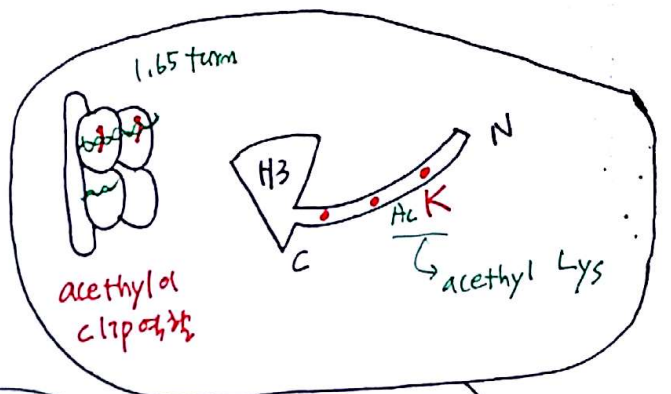 1.65 turn
H3
N
Ac K
C
acethyl Lys
acethyl이
clip역할